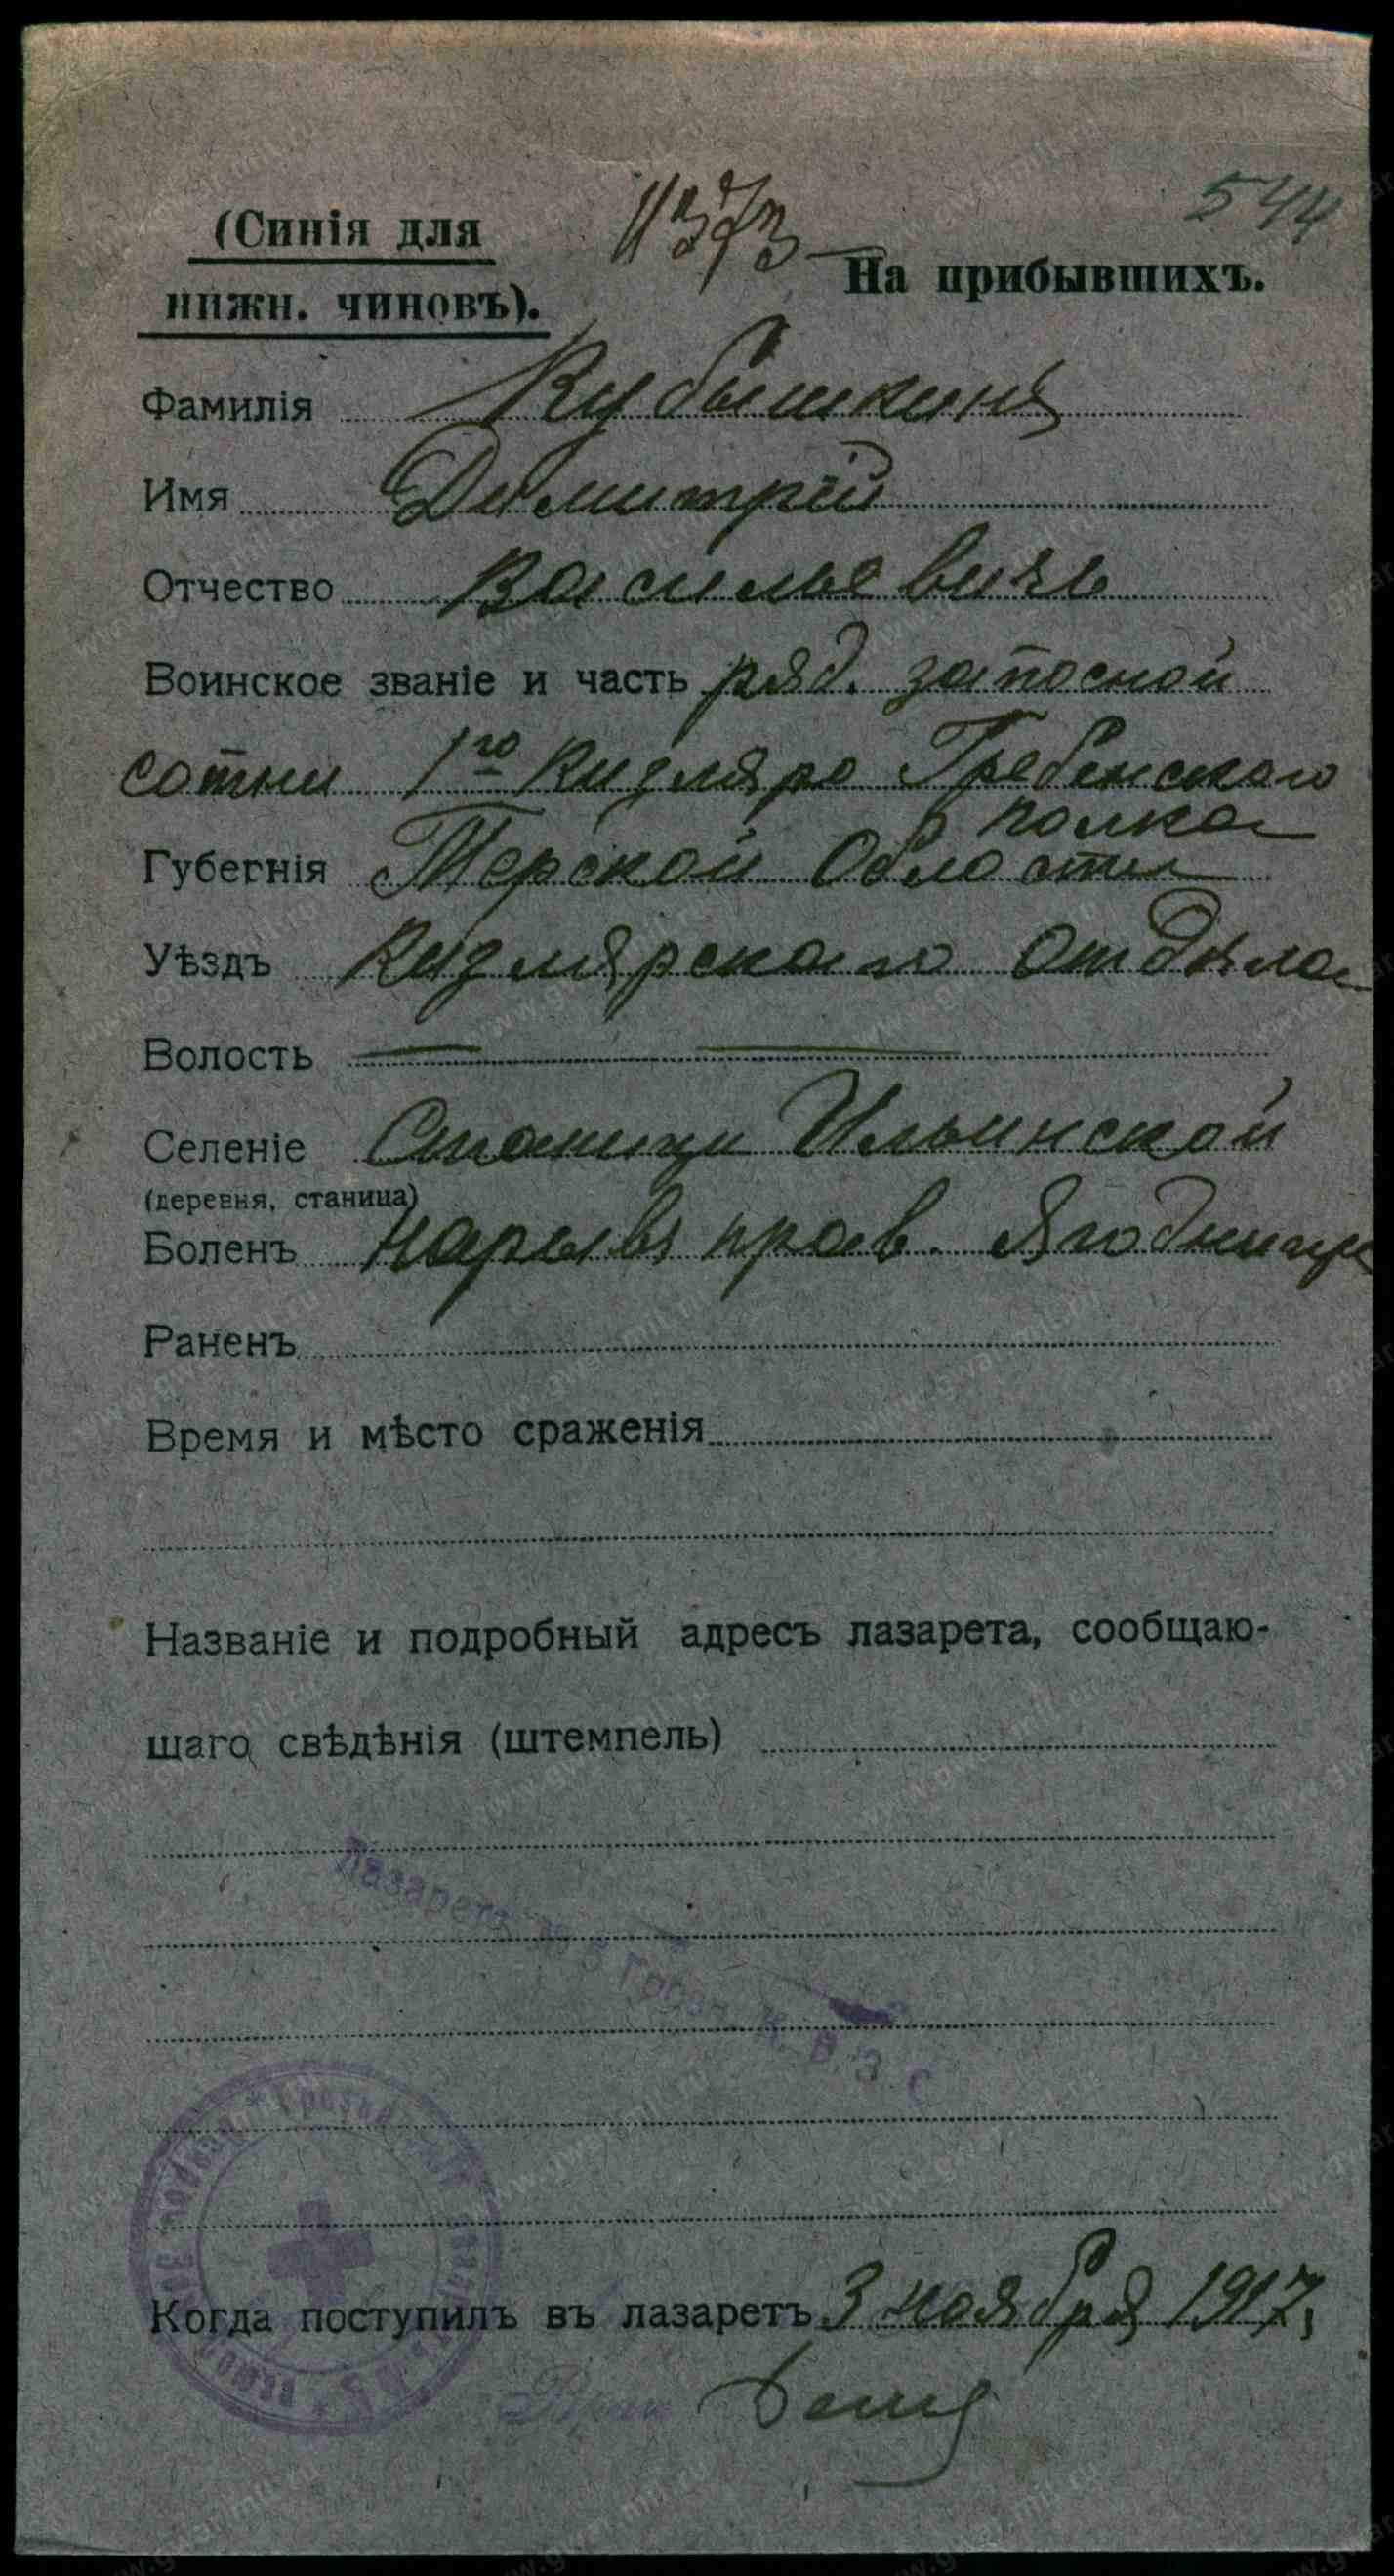 544
(Синія для
нижн. чиновъ).
На прибывшихъ.
Фамилія Кубышкинъ
Имя Димитрій
Отчество Васильевичъ
Воинское званіе и часть ряд. запасной
сотни 1го Кизляро Гребенского
полка
Губернія Терской Области
Уѣздъ Кизлярскаго Отдѣла
Волость
Селеніе Станицы Ильинской
(деревня, станица)
Боленъ Нарывъ прав. Ягодицы
Раненъ
Время и мѣсто сраженія
Названіе и подробный адресъ лазарета, сообщаю-
щаго свѣдѣнія (штемпель)
Лазаретъ № 3 Гроз. К. В. З. С.
Когда поступилъ въ лазаретъ 3 ноября 1917
Врачъ
www.gwar.mil.ru